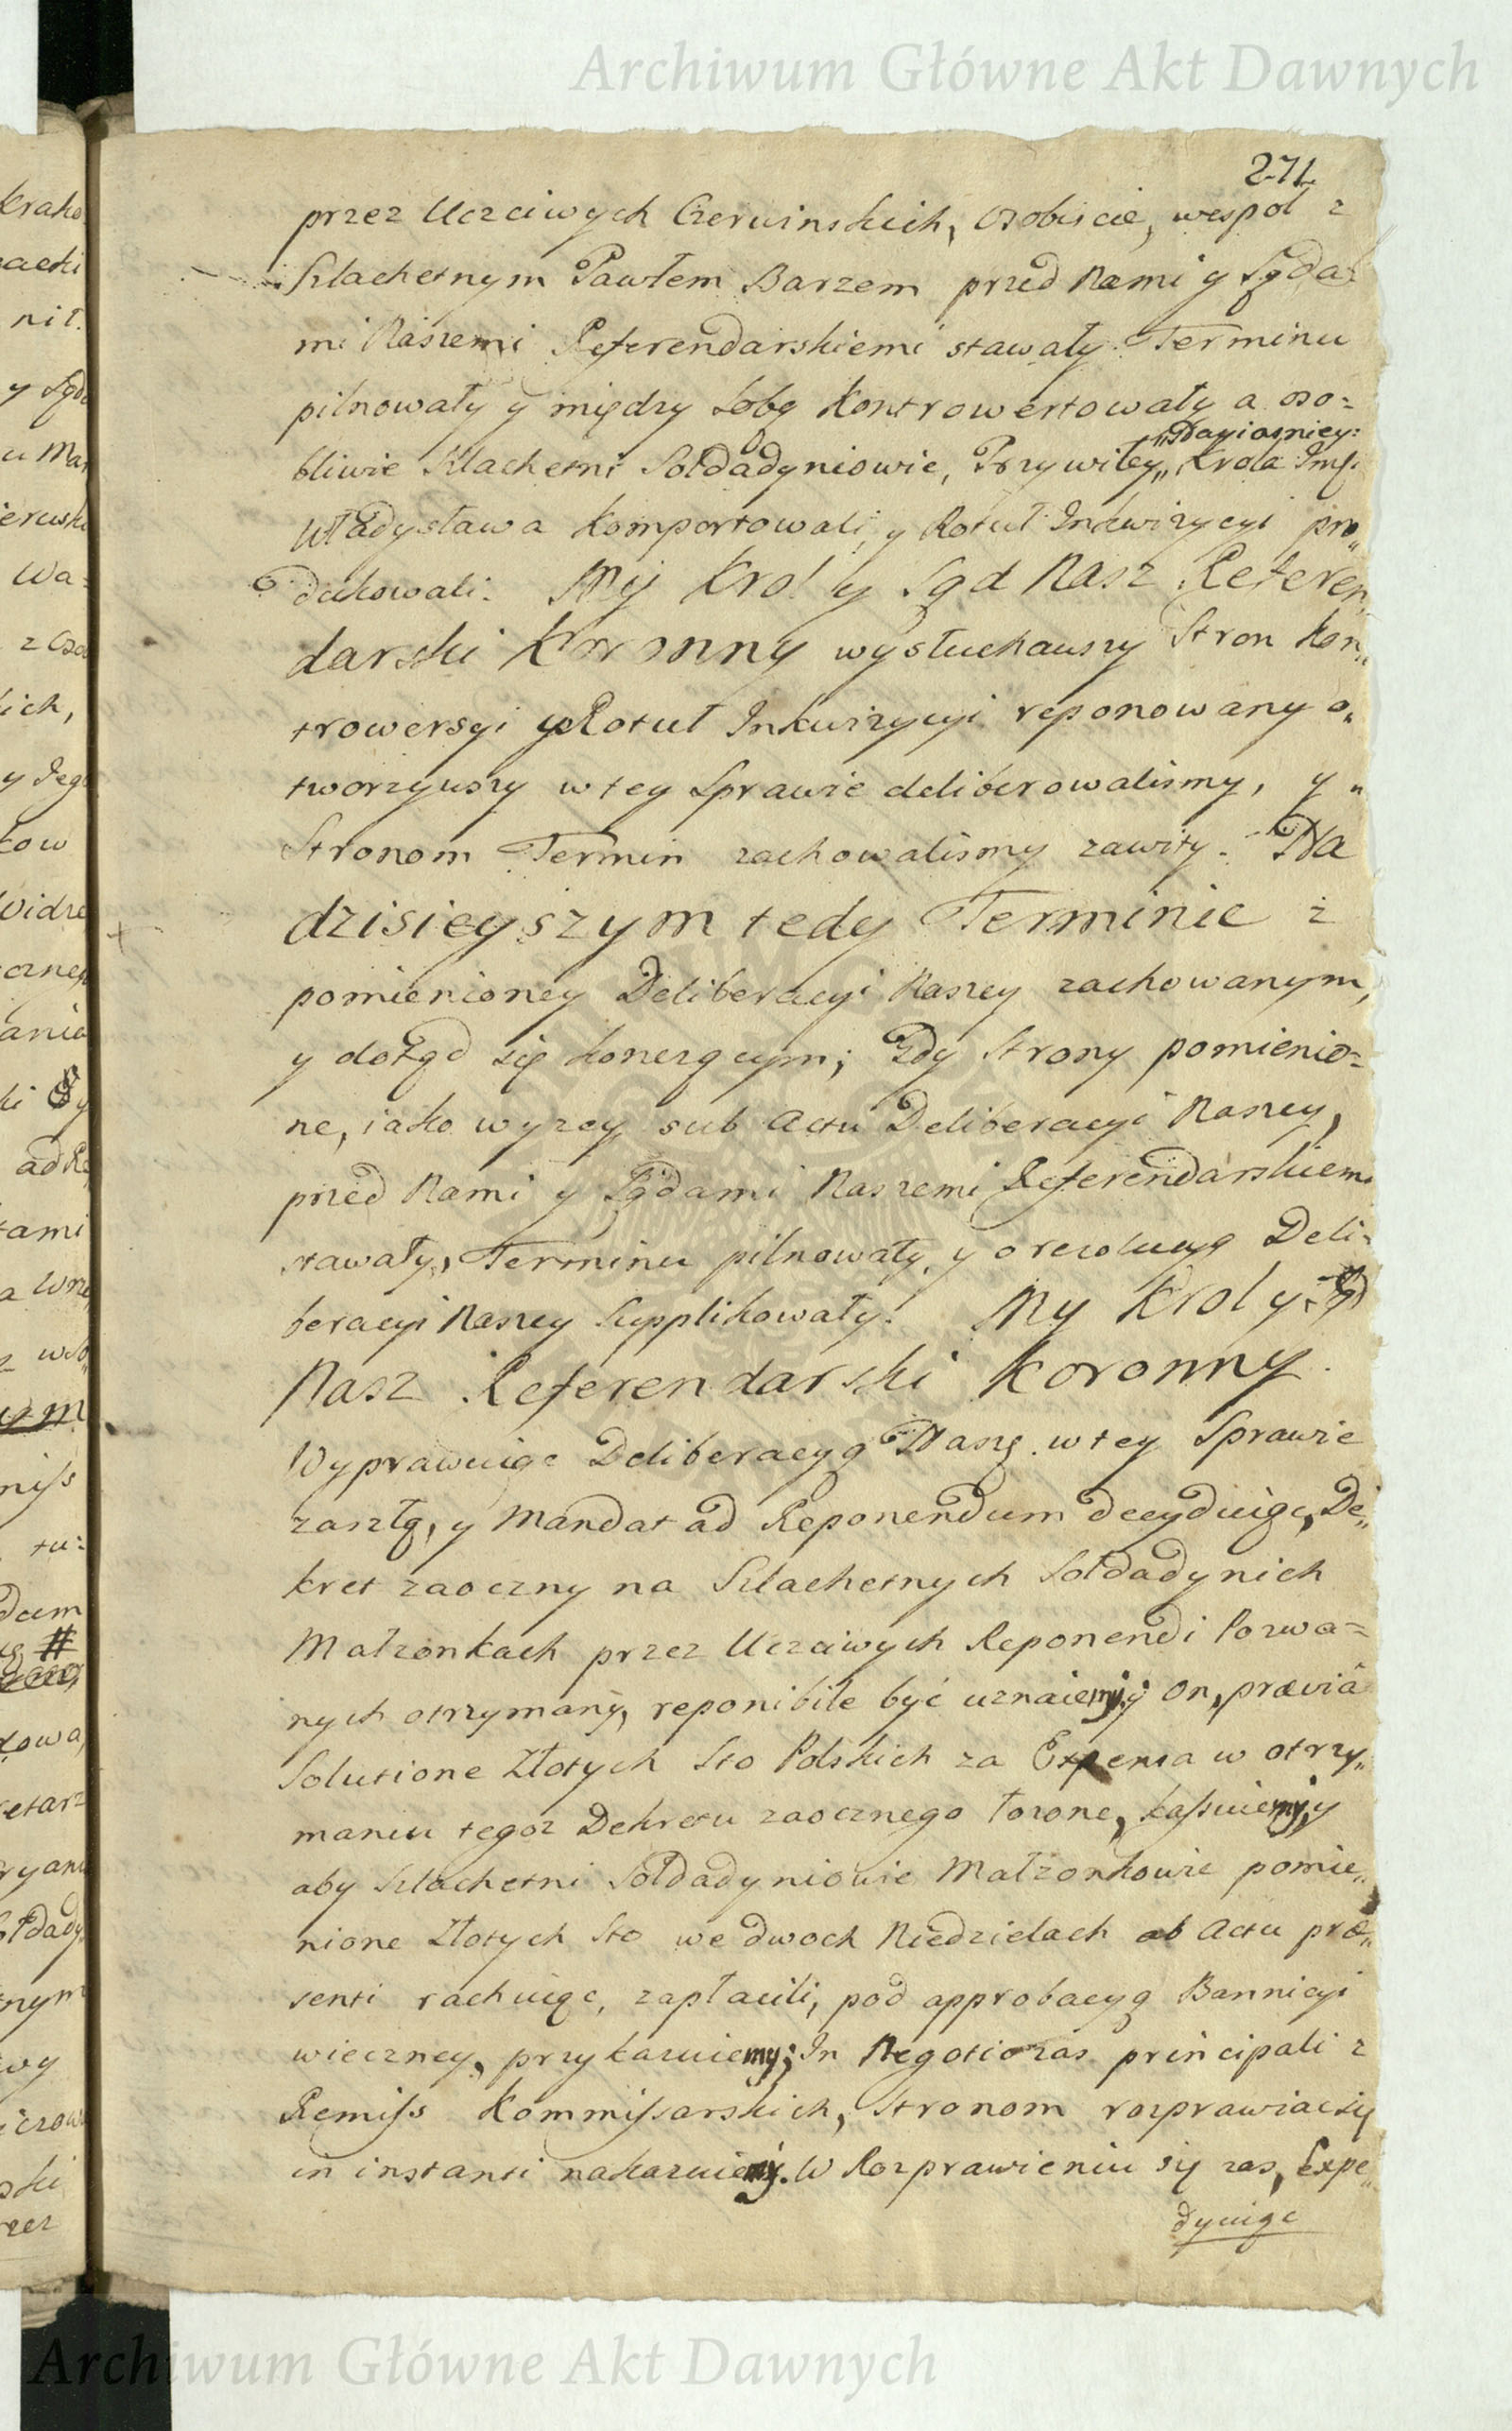 Archiwum Główne Akt Dawnych
271
przez Uczciwych Czerwinskich, osobiscie, wespoł z
Szlachetnym Pawłem Barzem przed Nami y Sąda=
mi Naszemi Referendarskiemi stawały. Terminu
pilnowały y między sobą Kontrowertowały a oso=
bliwie Szlachetni Sołdadyniowie, Przywiley „ Krola Jmści
Władysława komportowali, y Rotuł Inkwizycyi pro„
dukowali. My Krol y Sąd Nasz Referen„
darski Koronny wysłuchawszy Stron Kon„
trowersyi y Rotuł Inkwizycyi reponowany o„
tworzywszy w tey Sprawie deliberowalismy, y „
Stronom Termin zachowalismy zawity. Na
dzisieyszym tedy Terminie z
pomienioney Deliberacyi Naszey zachowanym,
y dotąd się konczącym; Gdy Strony pomienio=
ne, iako wyzey sub Actu Deliberacyi Naszey,
przed Nami y Sądami Naszemi Referendarskiemi
stawały, Terminu pilnowały, y o rezolucyą Deli=
beracyi Naszey Supplikowały. My Krol y Sąd
Nasz Referendarski Koronny.
Wyprawuiąc Deliberacyą Naszą w tey Sprawie
zaszłą, y Mandat ad Reponendum decyduiąc, De„
kret zaoczny na Szlachetnych Sołdadynich
Małzonkach przez Uczciwych Reponendi Pozwa=
nych otrzymany, reponibile być uznaiemy, y on, prævia
Solutione Złotych Sto Polskich za Expensa w otrzy„
maniu tegoz Dekretu zaocznego łozone, kassuiemy, y
aby Szlachetni Sołdadyniowie Małzonkowie pomie„
nione Złotych Sto we dwoch Niedzielach ab Actu præ„
senti rachuiąc, zapłacili, pod approbacyą Bannicyi
wieczney, przykazuiemy; In Negotio zas principali z
Remiss Kommissarskich, Stronom rozprawiac się
in instanti nakazuiemy. W Rozprawieniu się zas, Expe„
dyuiąc
Archiwum Główne Akt Dawnych